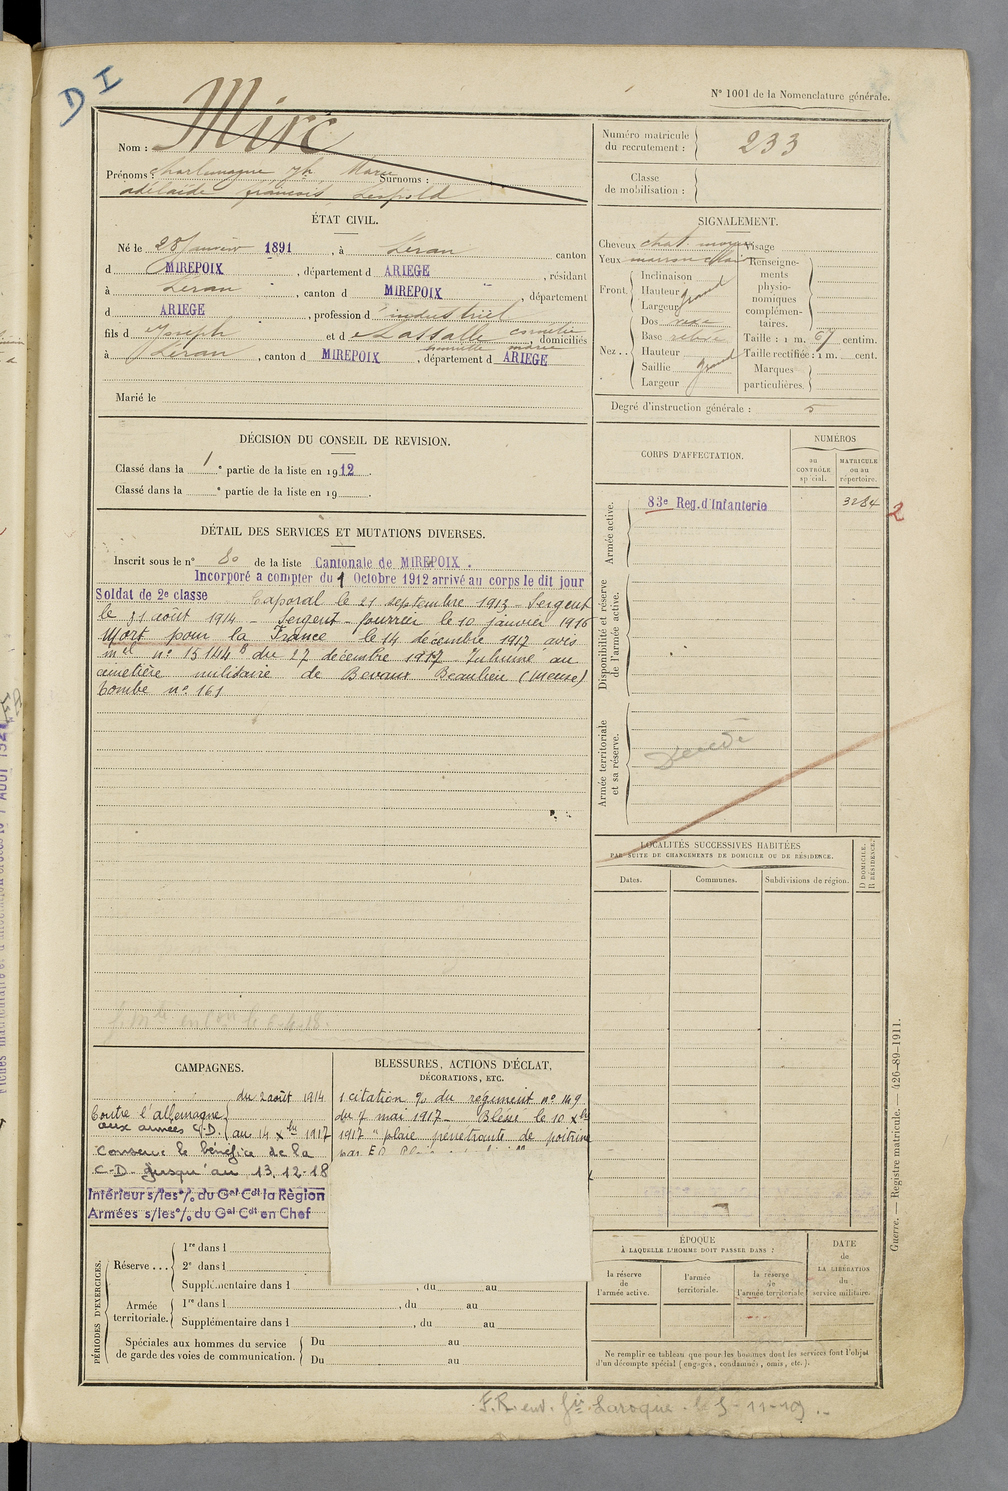 D I
N° 1001 de la Nomenclature générale.
Nom : Mirc
Prénoms : Charlemagne Jph Marie Surnoms :
adélaïde françois Léopold
ÉTAT CIVIL.
Né le 28 Janvier 1891, à Léran canton
d MIREPOIX, département d ARIEGE, résidant
à Léran, canton d MIREPOIX, département
d ARIEGE, profession d'industriel
fils d Joseph et d Lassalle cornélie
camille marie, domiciliés
à Léran, canton d MIREPOIX, département d ARIEGE
Marié le
DÉCISION DU CONSEIL DE REVISION.
Classé dans la 1e partie de la liste en 1912.
Classé dans la e partie de la liste en 19 .
DÉTAIL DES SERVICES ET MUTATIONS DIVERSES.
Inscrit sous le n° 80 de la liste Cantonale de MIREPOIX.
Incorporé a compter du 1 Octobre 1912 arrivé au corps le dit jour
Soldat de 2e classe Caporal le 21 septembre 1913 - Sergent
le 31 août 1914 - Sergent - fourrier le 10 janvier 1916
Mort pour la France le 14 decembre 1917 avis
mel n° 15144 B du 27 décembre 1917. Inhumé au
cimetière militaire de Bevaux Beaulieu (Meuse)
tombe n° 161
CAMPAGNES.
Contre l'allemagne { du 2 août 1914
aux armées C.D. { au 14 Xbre 1917
Conserve le bénéfice de la
C-D- jusqu'au 13.12-18
Intérieur s/les o/ du Gal Cdt la Région
Armées s/les o/ du Gal Cdt en Chef
BLESSURES, ACTIONS D'ÉCLAT,
DÉCORATIONS, ETC.
1 citation % du régiment n° 149
du 7 mai 1917 - Blessé le 10 Xbre
1917 "plaie pénétrante de poitrine
par E.O.
PÉRIODES D'EXERCICES.
Réserve ... { 1re dans l
2e dans l
Supplémentaire dans l , du au
Armée territoriale. { 1re dans l , du au
Supplémentaire dans l , du au
Spéciales aux hommes du service
de garde des voies de communication. { Du au
Du au
Numéro matricule
du recrutement : } 233
Classe
de mobilisation : }
SIGNALEMENT.
Cheveux chat. moyen Visage
Yeux marron clair
Front. { Inclinaison
Hauteur grand
Largeur
Nez .. { Dos
Base relevé
Hauteur
Saillie grand
Largeur
Renseigne-
ments
physio-
nomiques
complémen-
taires.
Taille : 1 m. 67 centim.
Taille rectifiée : 1 m. cent.
Marques
particulières.
Degré d'instruction générale : 5
CORPS D'AFFECTATION.
NUMÉROS
au
CONTRÔLE
spécial.
MATRICULE
ou au
répertoire.
Armée active.
83e Reg. d'Infanterie 3284
2
Disponibilité et réserve
de l'armée active.
Armée territoriale
et sa réserve.
Décédé
LOCALITÉS SUCCESSIVES HABITÉES
PAR SUITE DE CHANGEMENTS DE DOMICILE OU DE RÉSIDENCE.
Dates. Communes. Subdivisions de région.
D DOMICILE.
R RÉSIDENCE.
ÉPOQUE
À LAQUELLE L'HOMME DOIT PASSER DANS :
la réserve
de
l'armée active.
l'armée
territoriale.
la réserve
de
l'armée territoriale
DATE
de
LA LIBÉRATION
du
service militaire.
Ne remplir ce tableau que pour les hommes dont les services font l'objet
d'un décompte spécial (engagés, condamnés, omis, etc.).
Guerre. — Registre matricule. — 426-89-1911.
F.R. env. Gie Laroque - le 5-11-19 .-